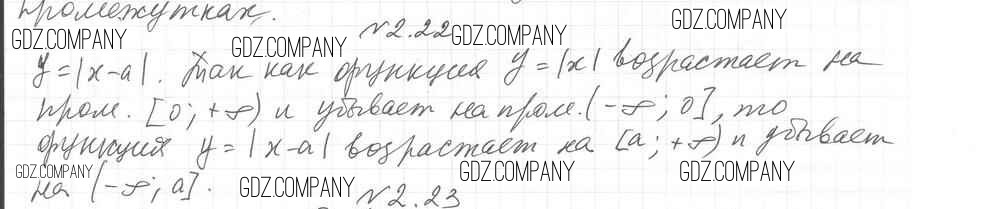 промежутках.
GDZ.COMPANY GDZ.COMPANY №2.22 GDZ.COMPANY GDZ.COMPANY
y = |x-a|. Так как функция y = |x| возрастает на
пром. [0; +∞) и убывает на пром. (-∞; 0], то
функция y = |x-a| возрастает на [a; +∞) и убывает
GDZ.COMPANY GDZ.COMPANY GDZ.COMPANY GDZ.COMPANY
на (-∞; a].
№2.23